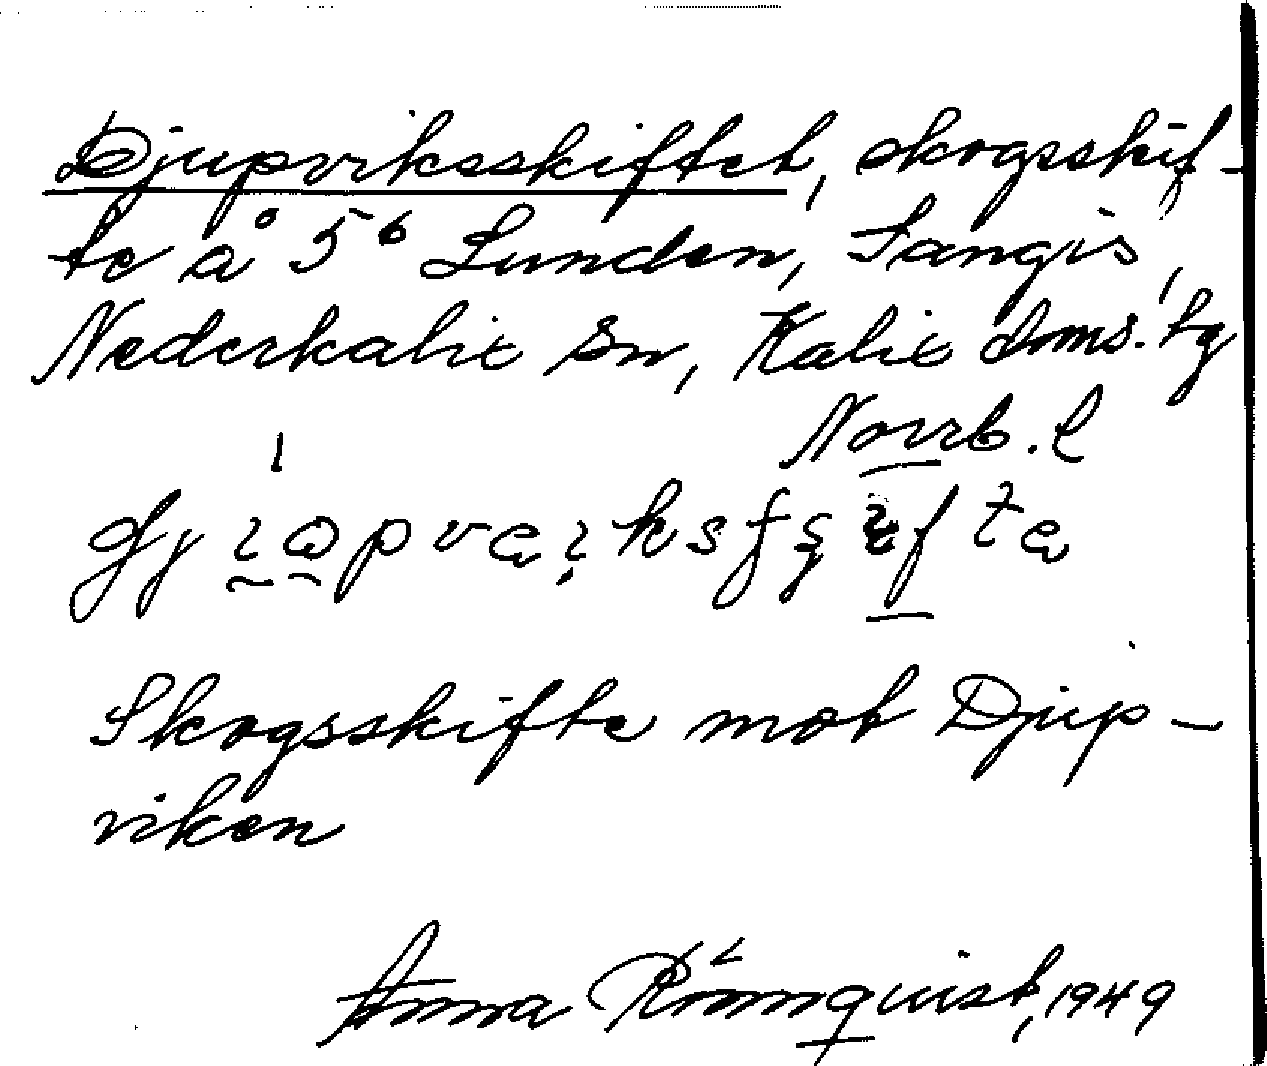 Djupviksskiftet, skogsskif-
te å 5⁶ Lunden, Sangis,
Nederkalix sn, Kalix doms. tg
Norrb. l
Skogsskifte mot Djup-
viken
Anna Rönnquist, 1949